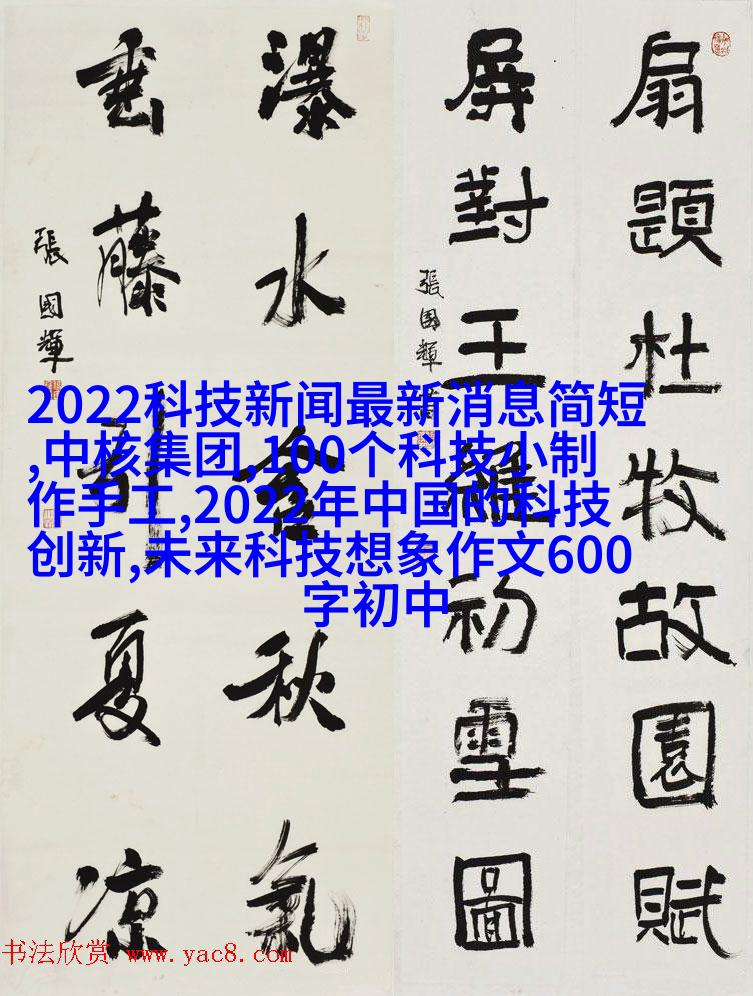 扇題杜牧故園賦
屏對王維初雪圖
張國輝
瀑水含秋氣
垂藤引夏凉
張國輝
2022科技新闻最新消息简短
,中核集团,100个科技小制
作手工,2022年中国的科技
创新,未来科技想象作文600
字初中
书法欣赏 www.yac8.com